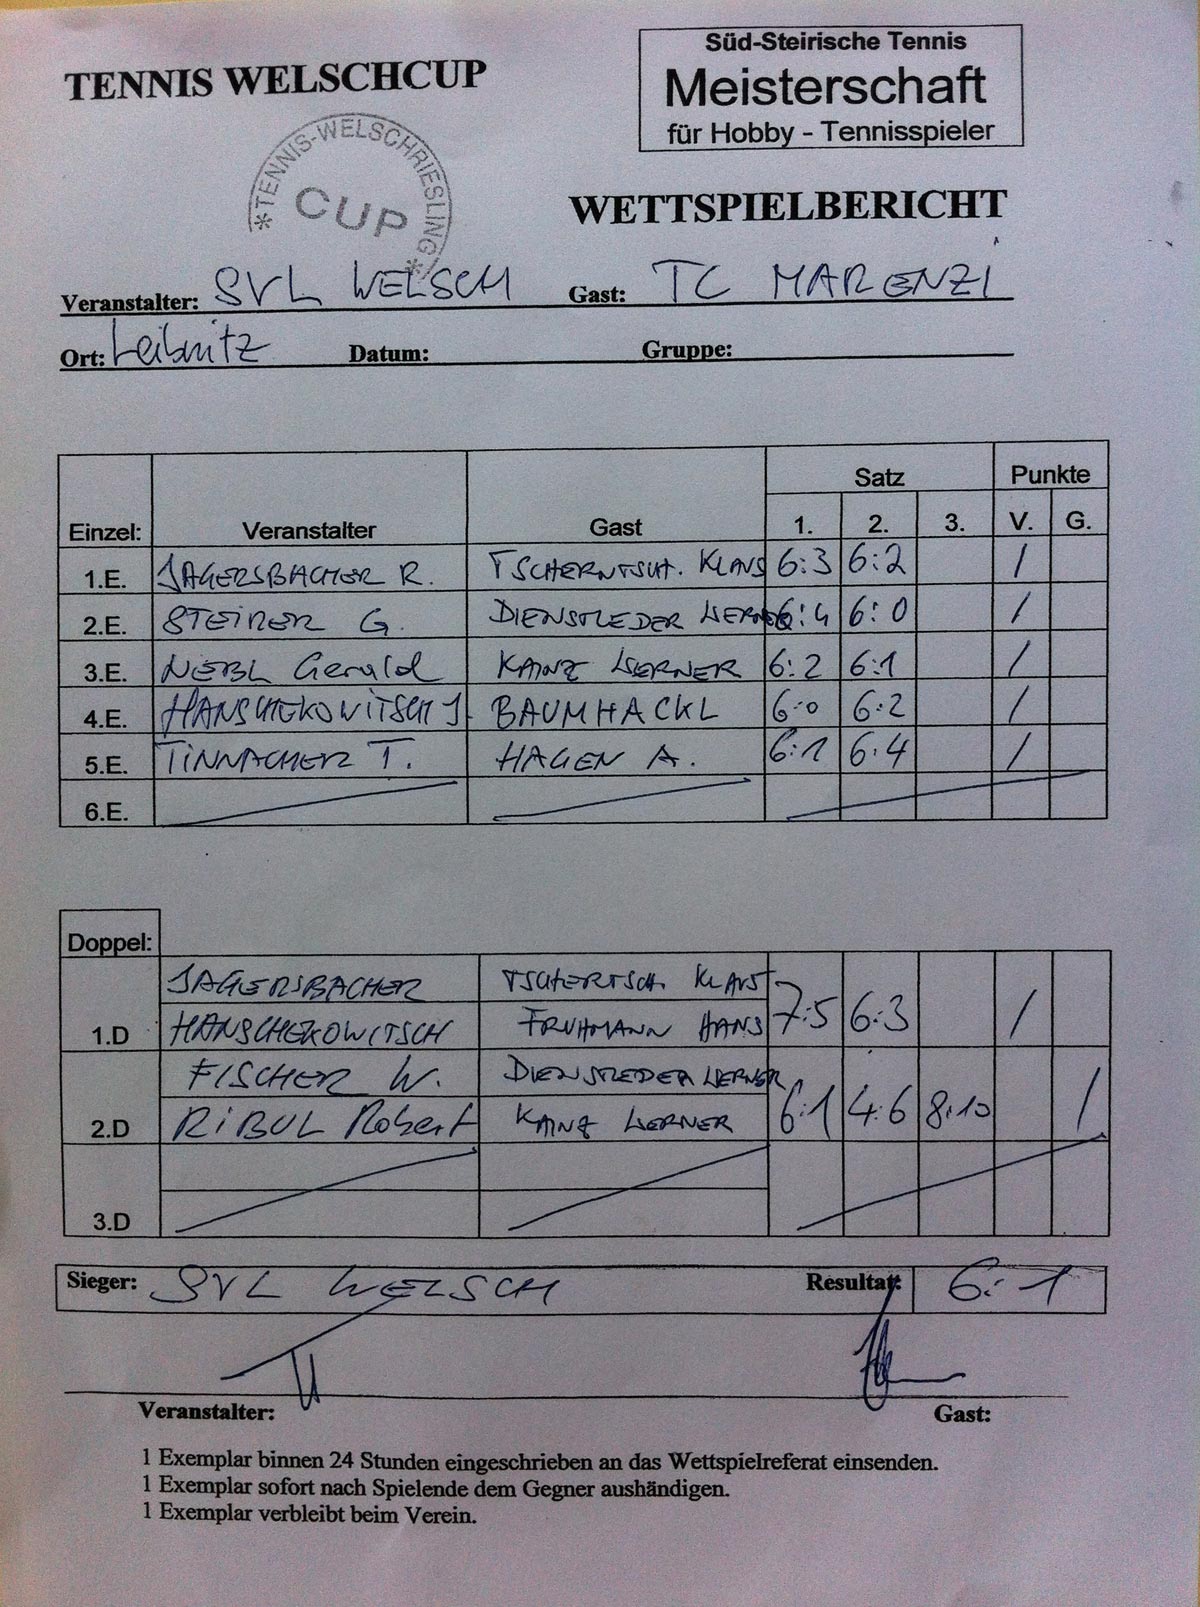 Süd-Steirische Tennis
TENNIS WELSCHCUP
Meisterschaft
für Hobby - Tennisspieler
*TENNIS-WELSCHRIESLING*
CUP
WETTSPIELBERICHT
Veranstalter: SVL WELSCH Gast: TC MARENZI
Ort: Leibnitz Datum: Gruppe:
Satz Punkte
Einzel: Veranstalter Gast 1. 2. 3. V. G.
1.E. JAGERSBACHER R. TSCHERNTSCH. KLAUS 6:3 6:2 /
2.E. STEINER G. DIENSTLEDER WERNER 6:4 6:0 /
3.E. NEBL Gerald KAINZ WERNER 6:2 6:1 /
4.E. HANSCHEKOWITSCH J. BAUMHACKL 6:0 6:2 /
5.E. TINNACHER T. HAGEN A. 6:1 6:4 /
6.E.
Doppel:
JAGERSBACHER TSCHERTSCH. KLAUS
1.D HANSCHEKOWITSCH FRUHMANN HANS 7:5 6:3 /
FISCHER W. DIENSTLEDER WERNER
2.D RIBUL Robert KAINZ WERNER 6:1 4:6 8:10 /
3.D
Sieger: SVL WELSCH Resultat: 6:1
Veranstalter: Gast:
1 Exemplar binnen 24 Stunden eingeschrieben an das Wettspielreferat einsenden.
1 Exemplar sofort nach Spielende dem Gegner aushändigen.
1 Exemplar verbleibt beim Verein.